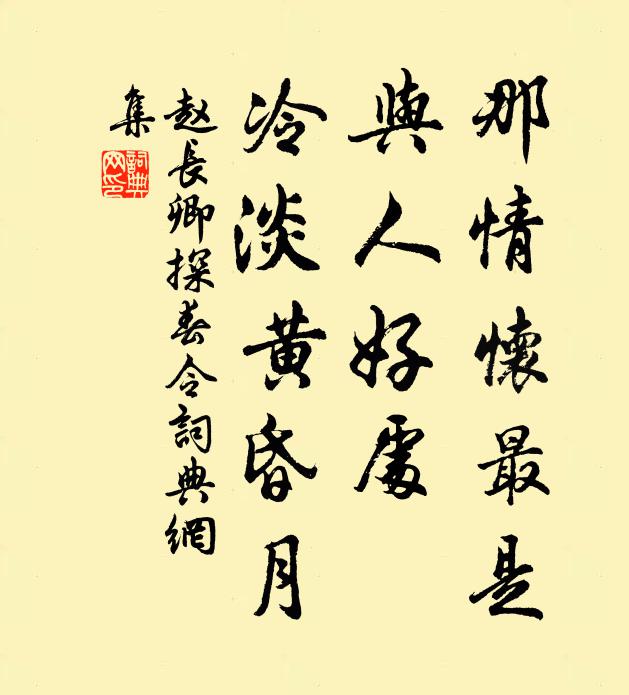 那情懷最是
與人好處
冷淡黃昏月
赵長卿探春令詞典網
集
詞典
网印